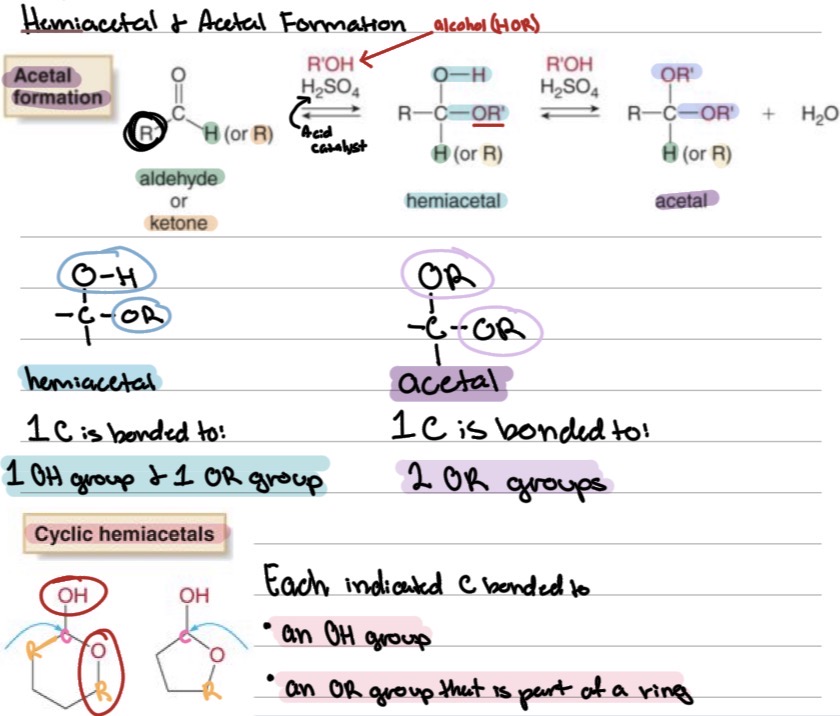 Hemiacetal & Acetal Formation
alcohol (HOR)
Acetal
formation
O
C
R
H (or R)
aldehyde
or
ketone
R'OH
H₂SO₄
Acid
catalyst
O—H
R—C—OR'
H (or R)
hemiacetal
R'OH
H₂SO₄
OR'
R—C—OR'
H (or R)
acetal
+ H₂O
O-H
-C-OR
hemiacetal
1 C is bonded to:
1 OH group & 1 OR group
OR
-C-OR
acetal
1 C is bonded to:
2 OR groups
Cyclic hemiacetals
OH
C
R
O
R
OH
C
O
R
Each indicated C bonded to
• an OH group
• an OR group that is part of a ring